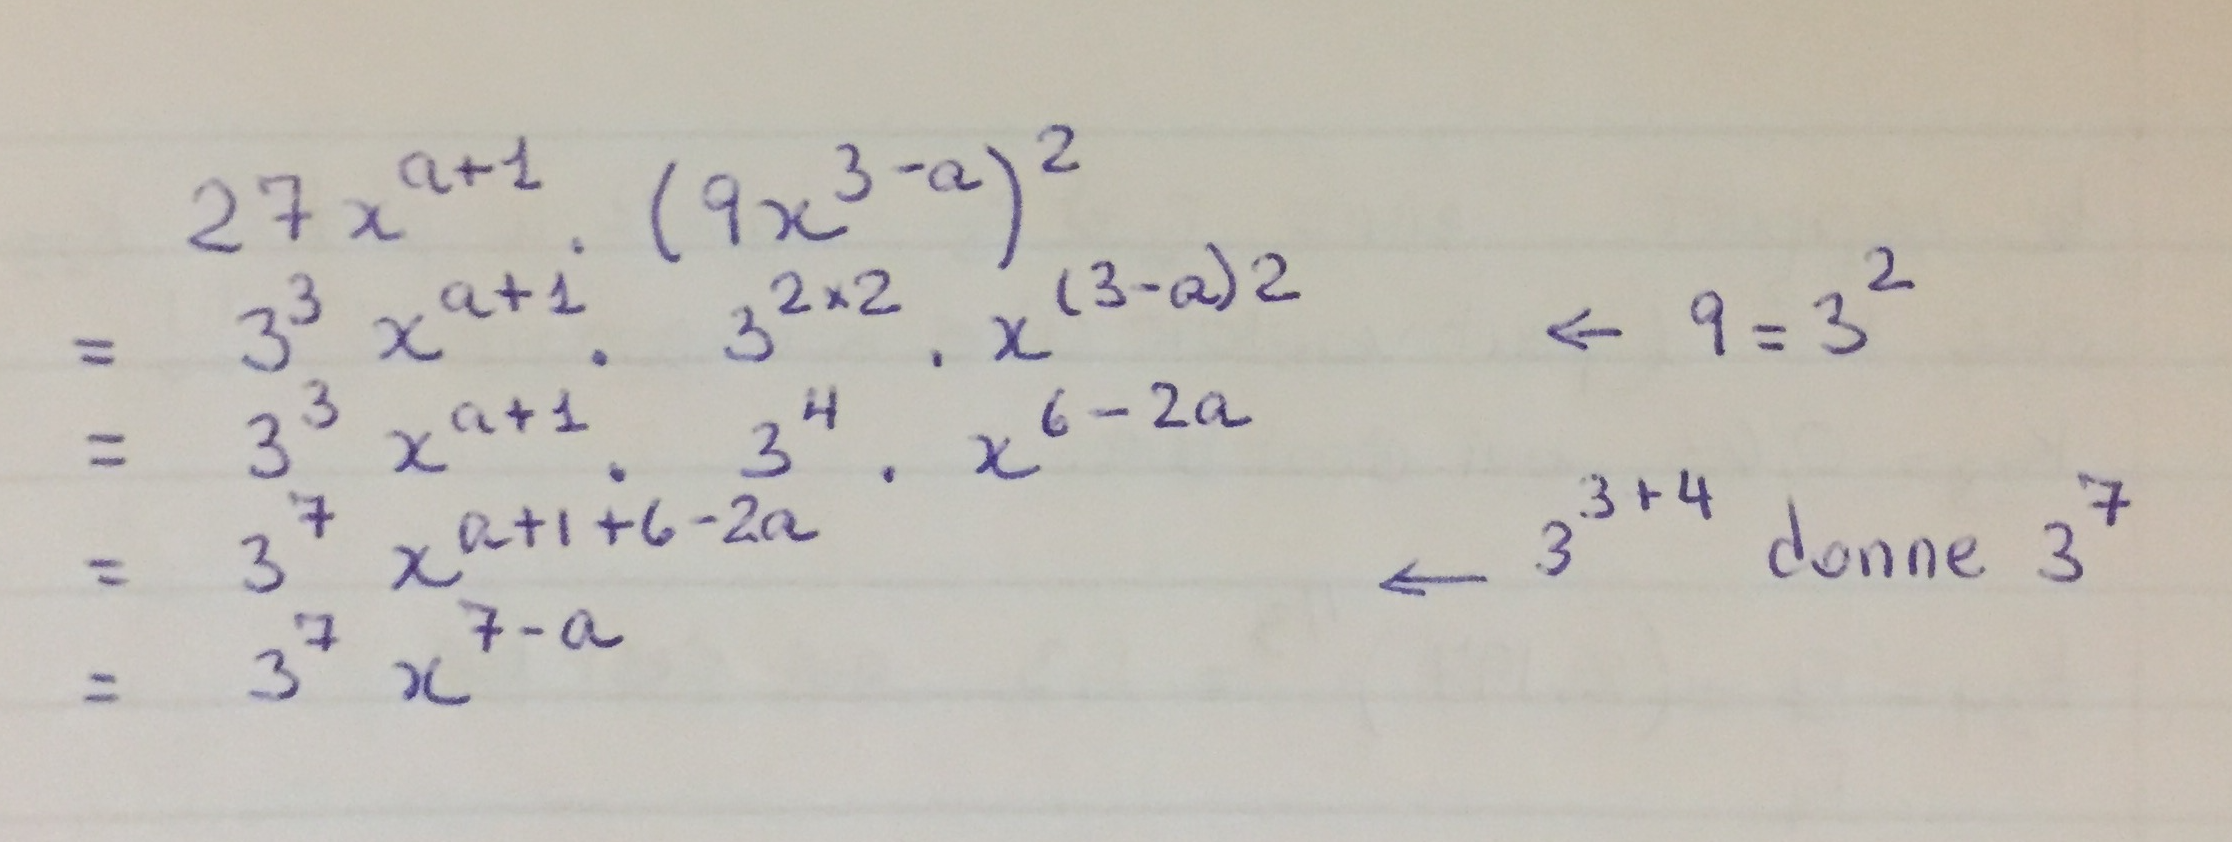 27x^{a+1} . (9x^{3-a})^2
= 3^3 x^{a+1} . 3^{2×2} . x^{(3-a)2} ← 9 = 3^2
= 3^3 x^{a+1} . 3^4 . x^{6-2a}
= 3^7 x^{a+1+6-2a} ← 3^{3+4} donne 3^7
= 3^7 x^{7-a}